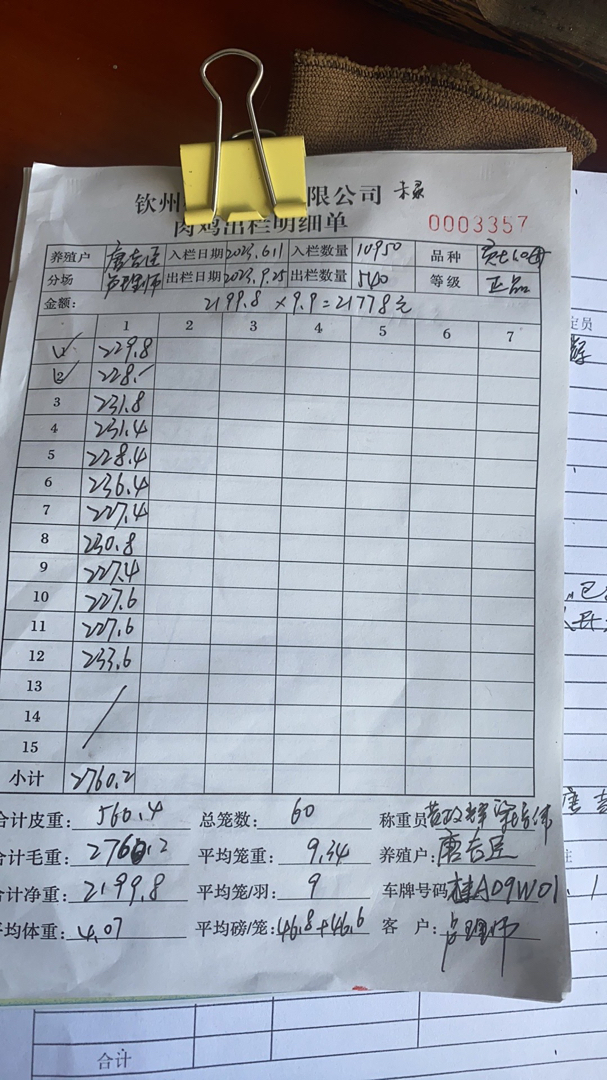 钦州 限公司
肉鸡出栏明细单 0003357
养殖户 入栏日期 2023.6.11 入栏数量 10950 品种
分场 出栏日期 2023.9.25 出栏数量 540 等级 正品
金额: 2199.8 × 9.9 = 21778元
1 2 3 4 5 6 7
1 229.8
2 228.-
3 231.8
4 231.4
5 228.4
6 236.4
7 227.4
8 230.8
9 227.4
10 227.6
11 227.6
12 233.6
13
14
15
小计 2760.2
合计皮重: 560.4 总笼数: 60 称重员
合计毛重: 2760.2 平均笼重: 9.34 养殖户:
合计净重: 2199.8 平均笼/羽: 9 车牌号码 桂A09W01
平均体重: 4.07 平均磅/笼: 46.8+46.6 客 户:
定员
合计